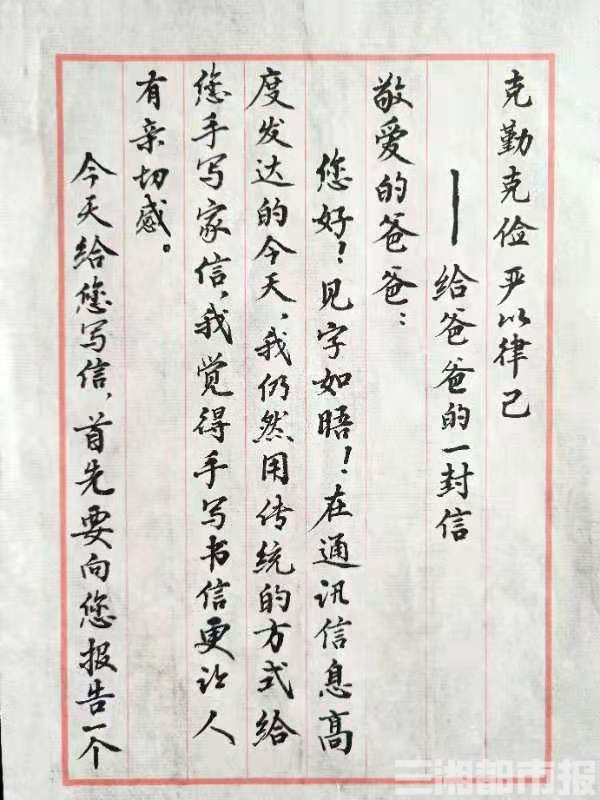 克勤克俭 严以律己
——给爸爸的一封信
敬爱的爸爸：
您好！见字如晤！在通讯信息高
度发达的今天，我仍然用传统的方式给
您手写家信，我觉得手写书信更让人
有亲切感。
今天给您写信，首先要向您报告一个
三湘都市报